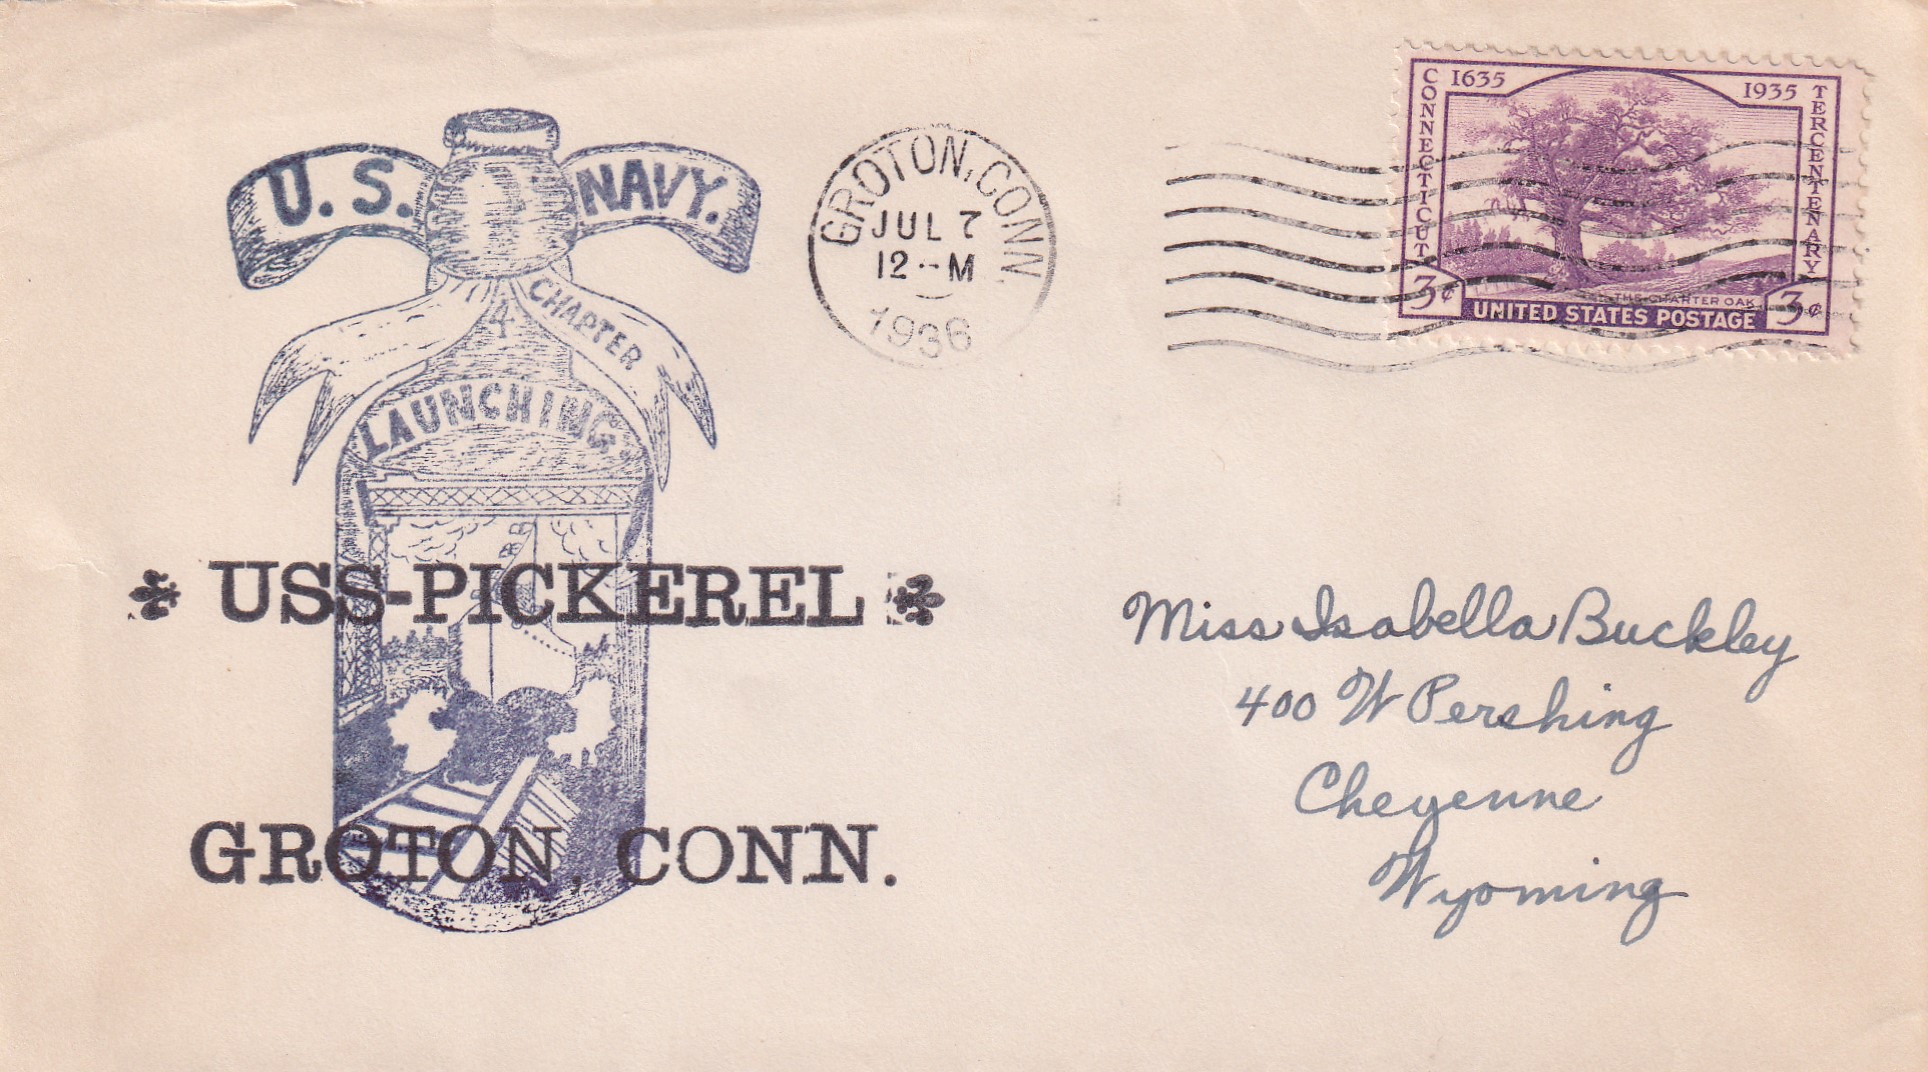 U. S. NAVY.
4 CHAPTER
LAUNCHING
* USS-PICKEREL *
GROTON, CONN.
GROTON, CONN.
JUL 7
12 -- M
1936
1635 1935
CONNECTICUT TERCENTENARY
THE CHARTER OAK
3¢ UNITED STATES POSTAGE 3¢
Miss Isabella Buckley
400 W Pershing
Cheyenne
Wyoming